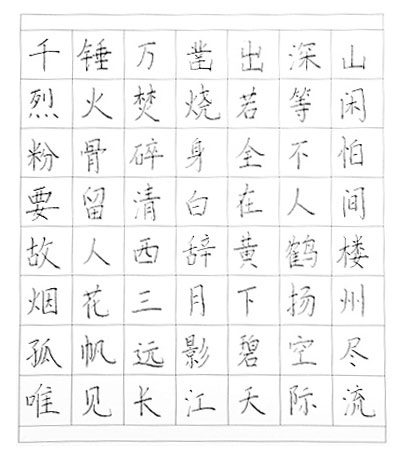 千锤万凿出深山
烈火焚烧若等闲
粉骨碎身全不怕
要留清白在人间
故人西辞黄鹤楼
烟花三月下扬州
孤帆远影碧空尽
唯见长江天际流